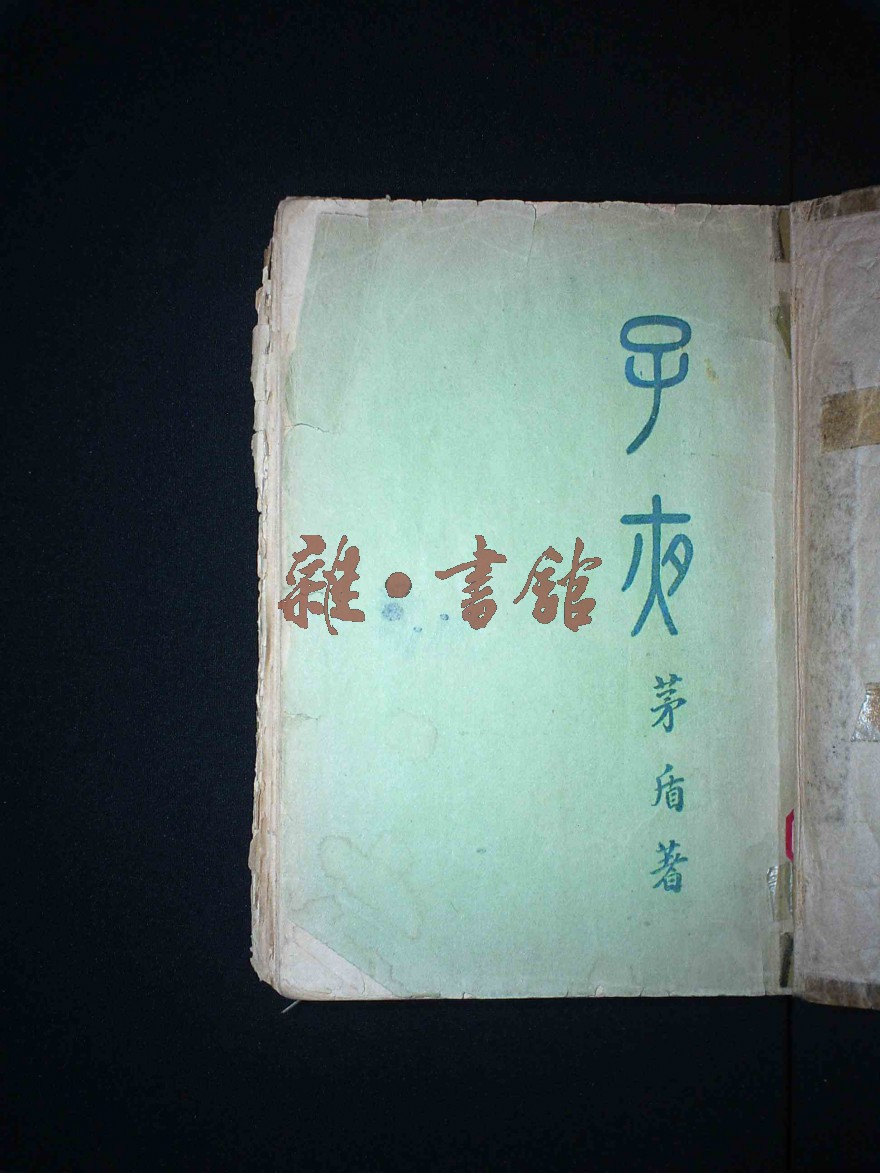 子夜
茅盾著
雜·書館